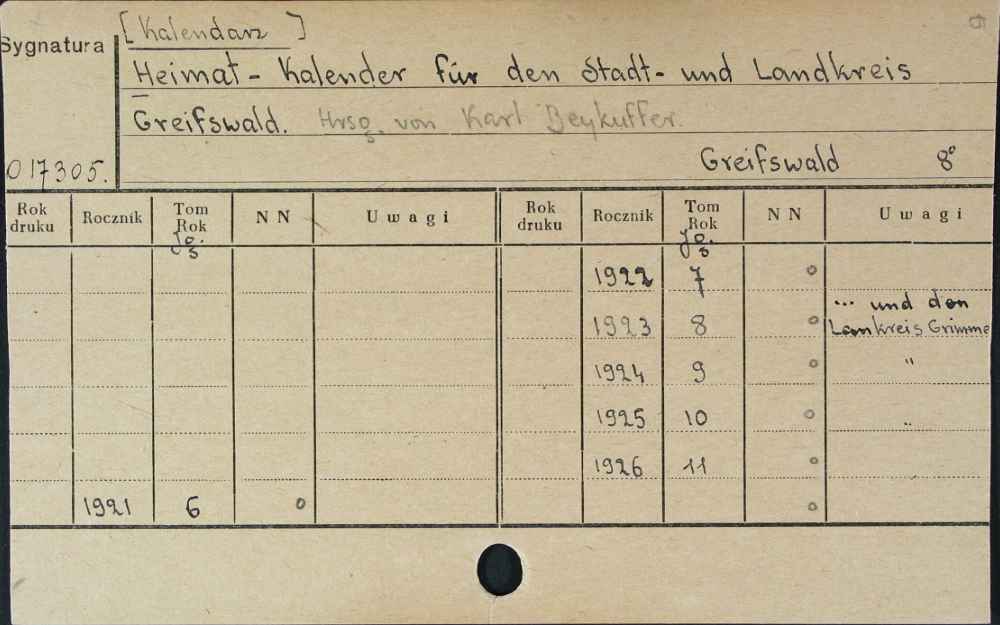 [Kalendarz]
Sygnatura
Heimat-Kalender für den Stadt- und Landkreis
Greifswald. Hrsg. von Karl Beykuffer.
017305.
Greifswald 8°
Rok druku Rocznik Tom Rok NN Uwagi Rok druku Rocznik Tom Rok NN Uwagi
Jg. Jg.
1922 7 o
... und den
1923 8 o Lamkreis Grimme
1924 9 o "
1925 10 o "
1926 11 o
1921 6 o o